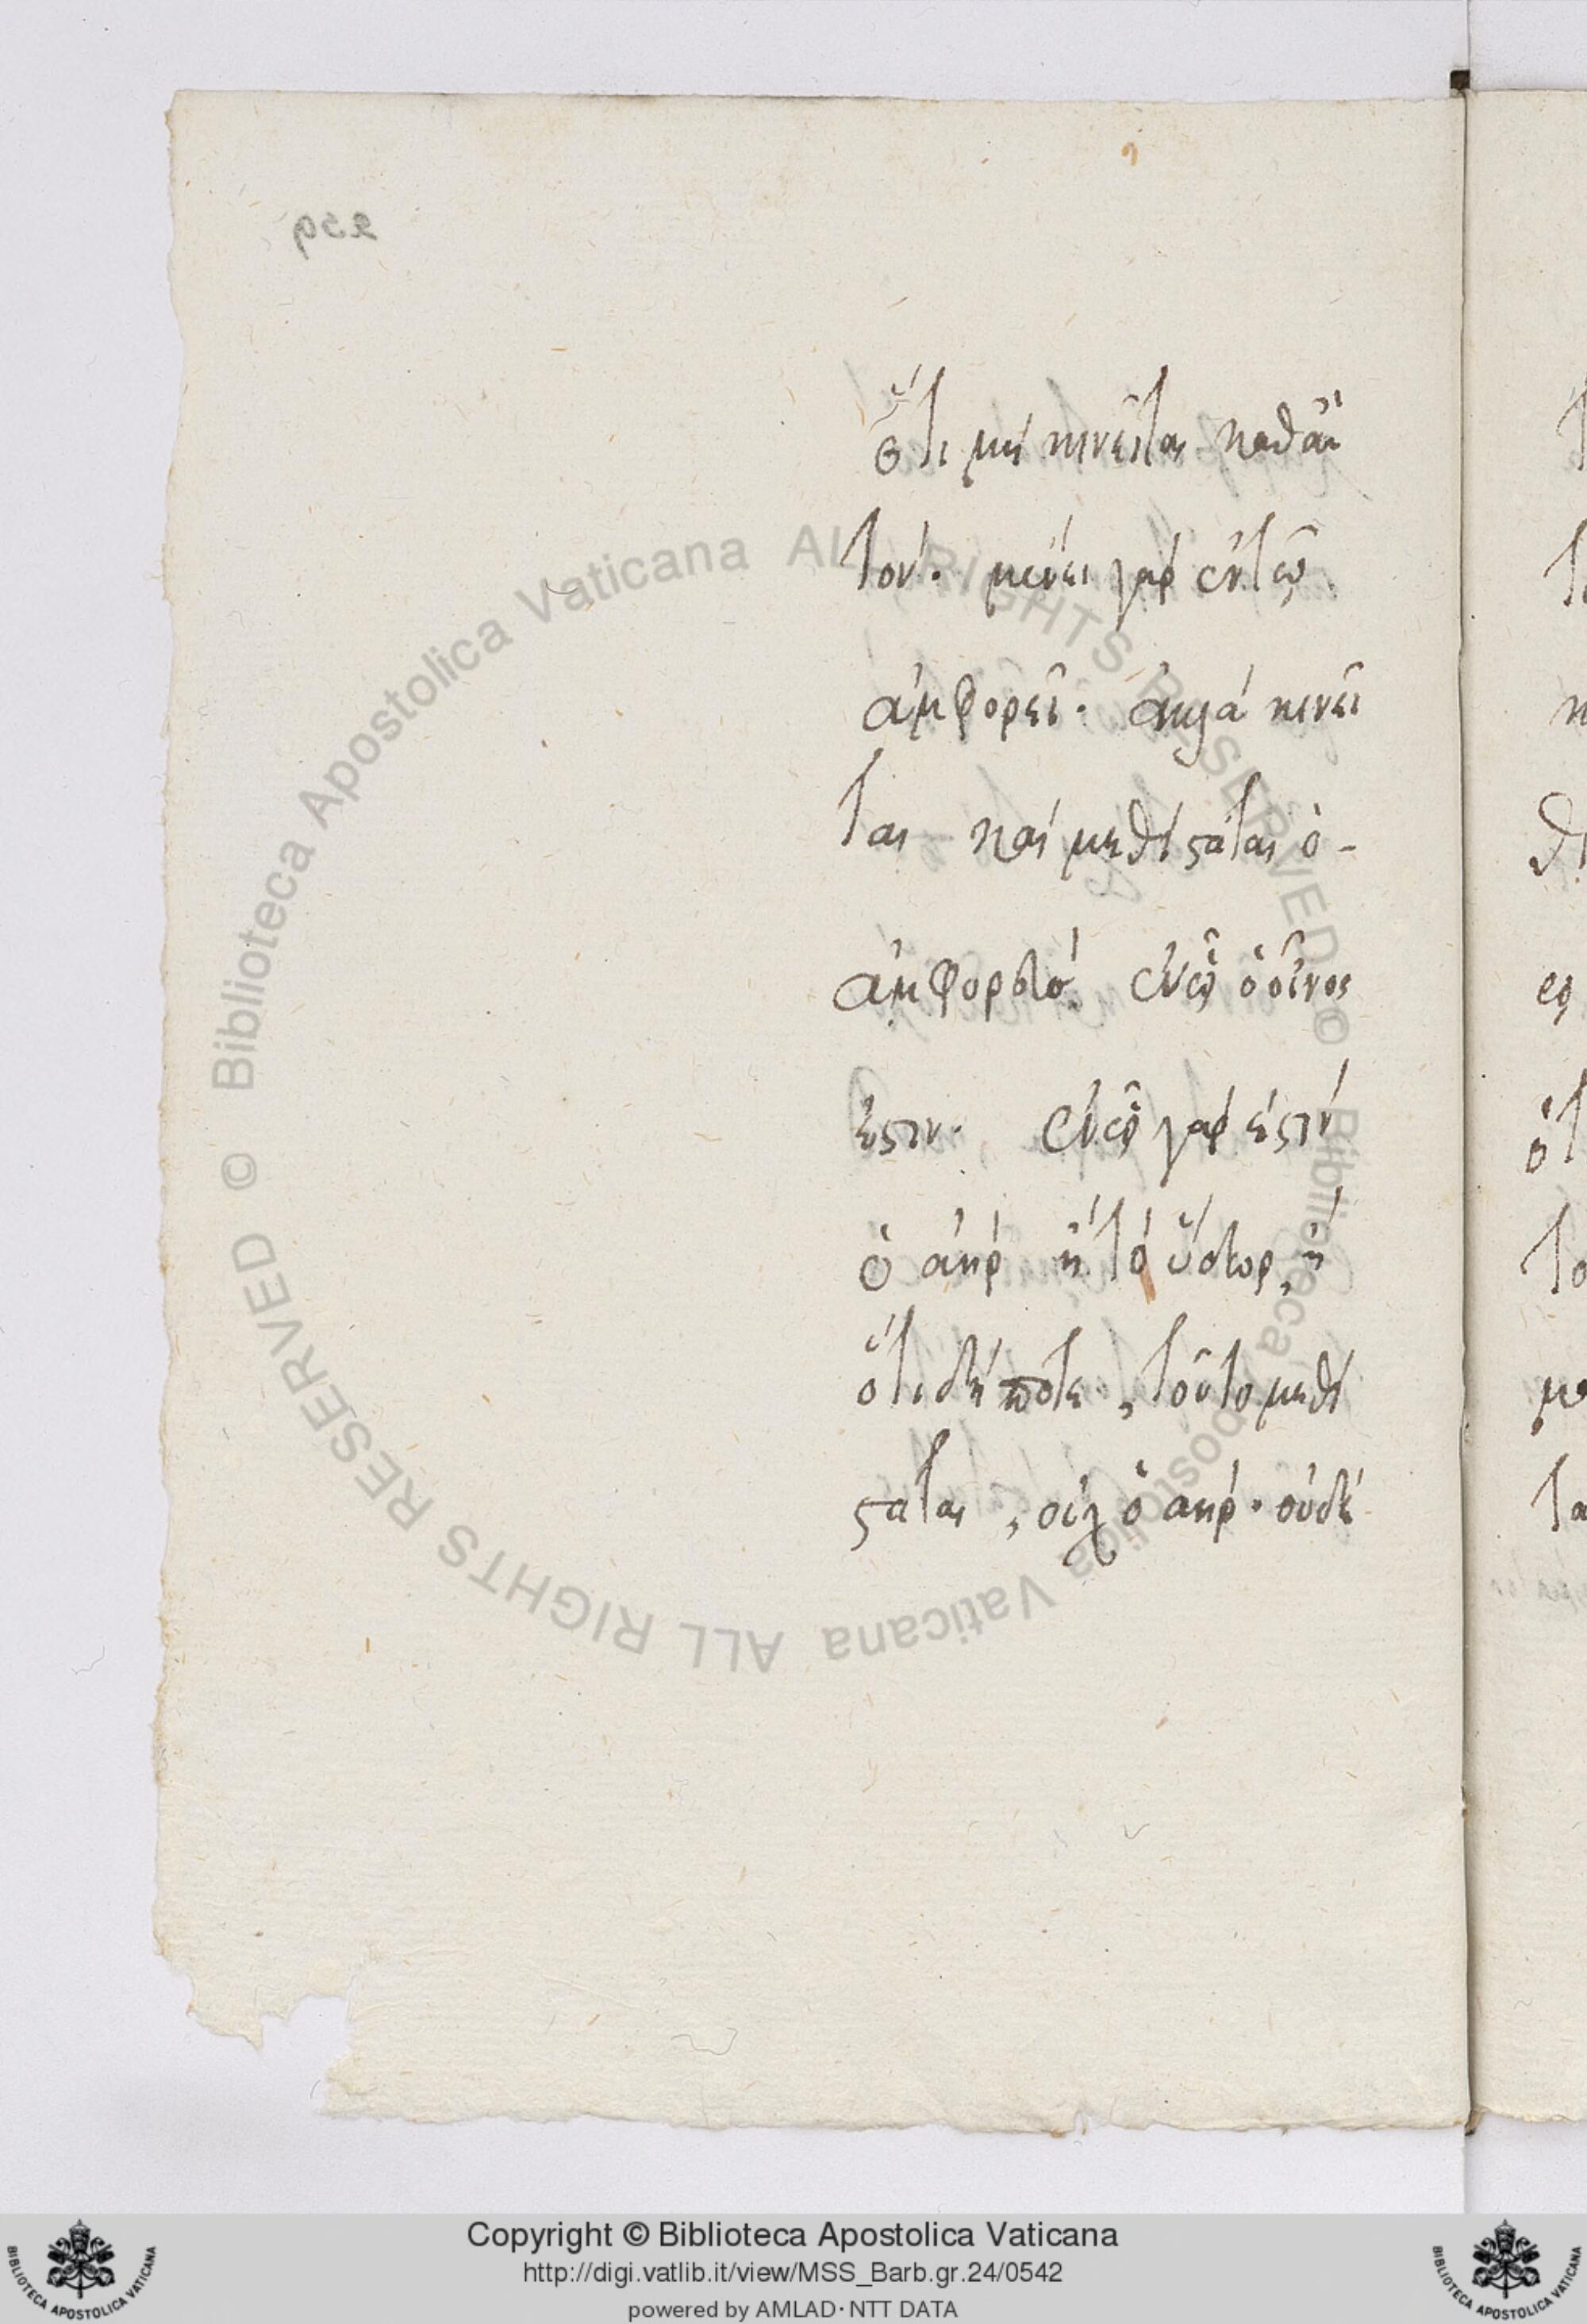 ὅτι μὴ κινεῖται καθ᾽ αὑ
τόν. μένει γὰρ ἐν τῷ
ἀμφορεῖ. ἀλλὰ κινεῖ
ται καὶ μεθίσταται ὁ-
ἀμφορεὺς ἐν ᾧ ὁ οἶνος
ἐστιν. ἐν ᾧ γὰρ ἐστὶν
ὁ ἀὴρ ἢ τὸ ὕδωρ, ἢ
ὅτι δή ποτε, τοῦτο μεθί
σταται, οὐχ ὁ ἀὴρ. οὐδὲ
Biblioteca Apostolica Vaticana ALL RIGHTS RESERVED ©
Biblioteca Apostolica Vaticana ALL RIGHTS RESERVED ©
Copyright © Biblioteca Apostolica Vaticana
http://digi.vatlib.it/view/MSS_Barb.gr.24/0542
powered by AMLAD·NTT DATA
BIBLIOTECA APOSTOLICA VATICANA
BIBLIOTECA APOSTOLICA VATICANA